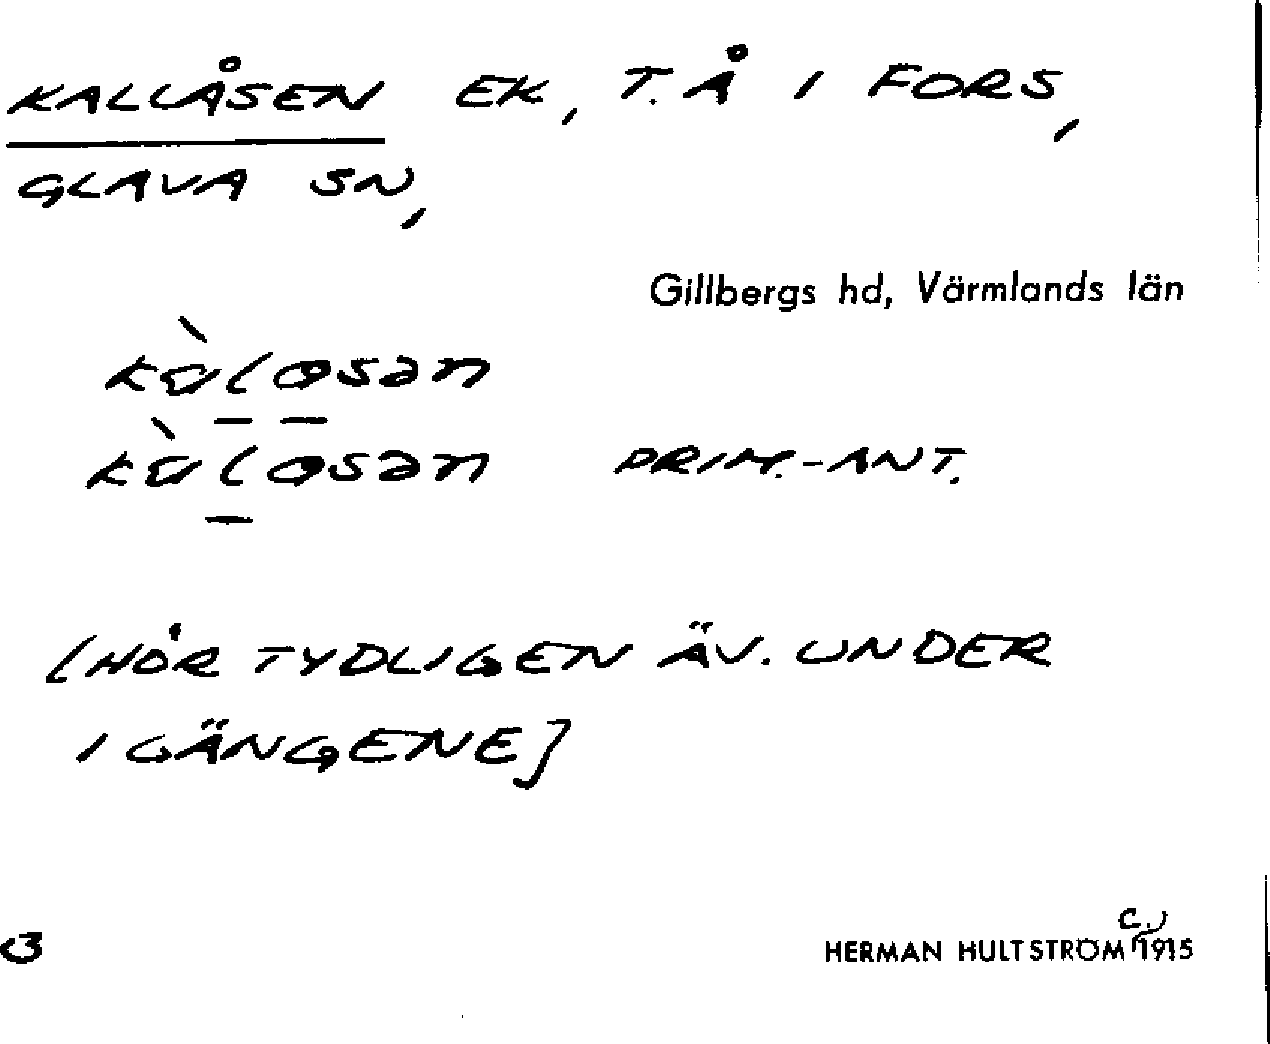 KALLÅSEN EK, T. Å I FORS,
GLAVA SN,
Gillbergs hd, Värmlands län
PRIM.-ANT.
[HÖR TYDLIGEN ÄV. UNDER
I GÄNGENE]
HERMAN HULTSTRÖM (c.) 1915